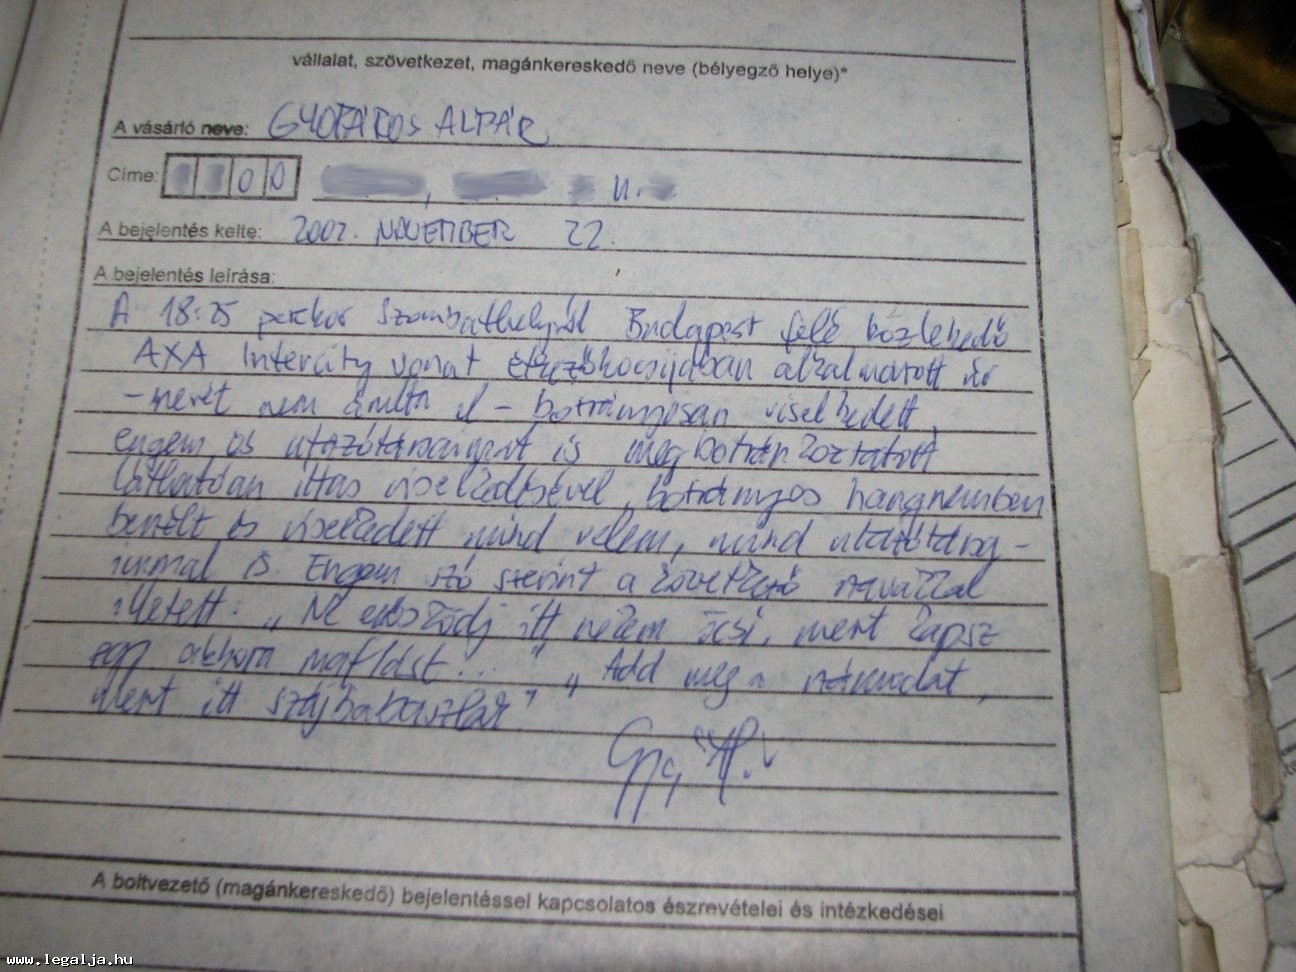 vállalat, szövetkezet, magánkereskedő neve (bélyegző helye)*
A vásárló neve: GYOPÁROS ALPÁR
Címe: 0 0 u.
A bejelentés kelte: 2007. NOVEMBER 22.
A bejelentés leírása:
A 18:25 perckor Szombathelyről Budapest felé közlekedő
AXA Intercity vonat étkezőkocsijában alkalmazott úr
- nevét nem árulta el - botrányosan viselkedett,
engem és utazótársaimat is megbotránkoztatott
láthatóan ittas viselkedésével, botrányos hangnemben
beszélt és viselkedett mind velem, mind utazótársa-
immal is. Engem szó szerint a következő szavakkal
illetett: „Ne enbszködj itt nekem öcsi, mert kapsz
egy akkora maflást..." „Add meg a számodat,
mert itt szájbabaszlak"
A boltvezető (magánkereskedő) bejelentéssel kapcsolatos észrevételei és intézkedései
www.legalja.hu